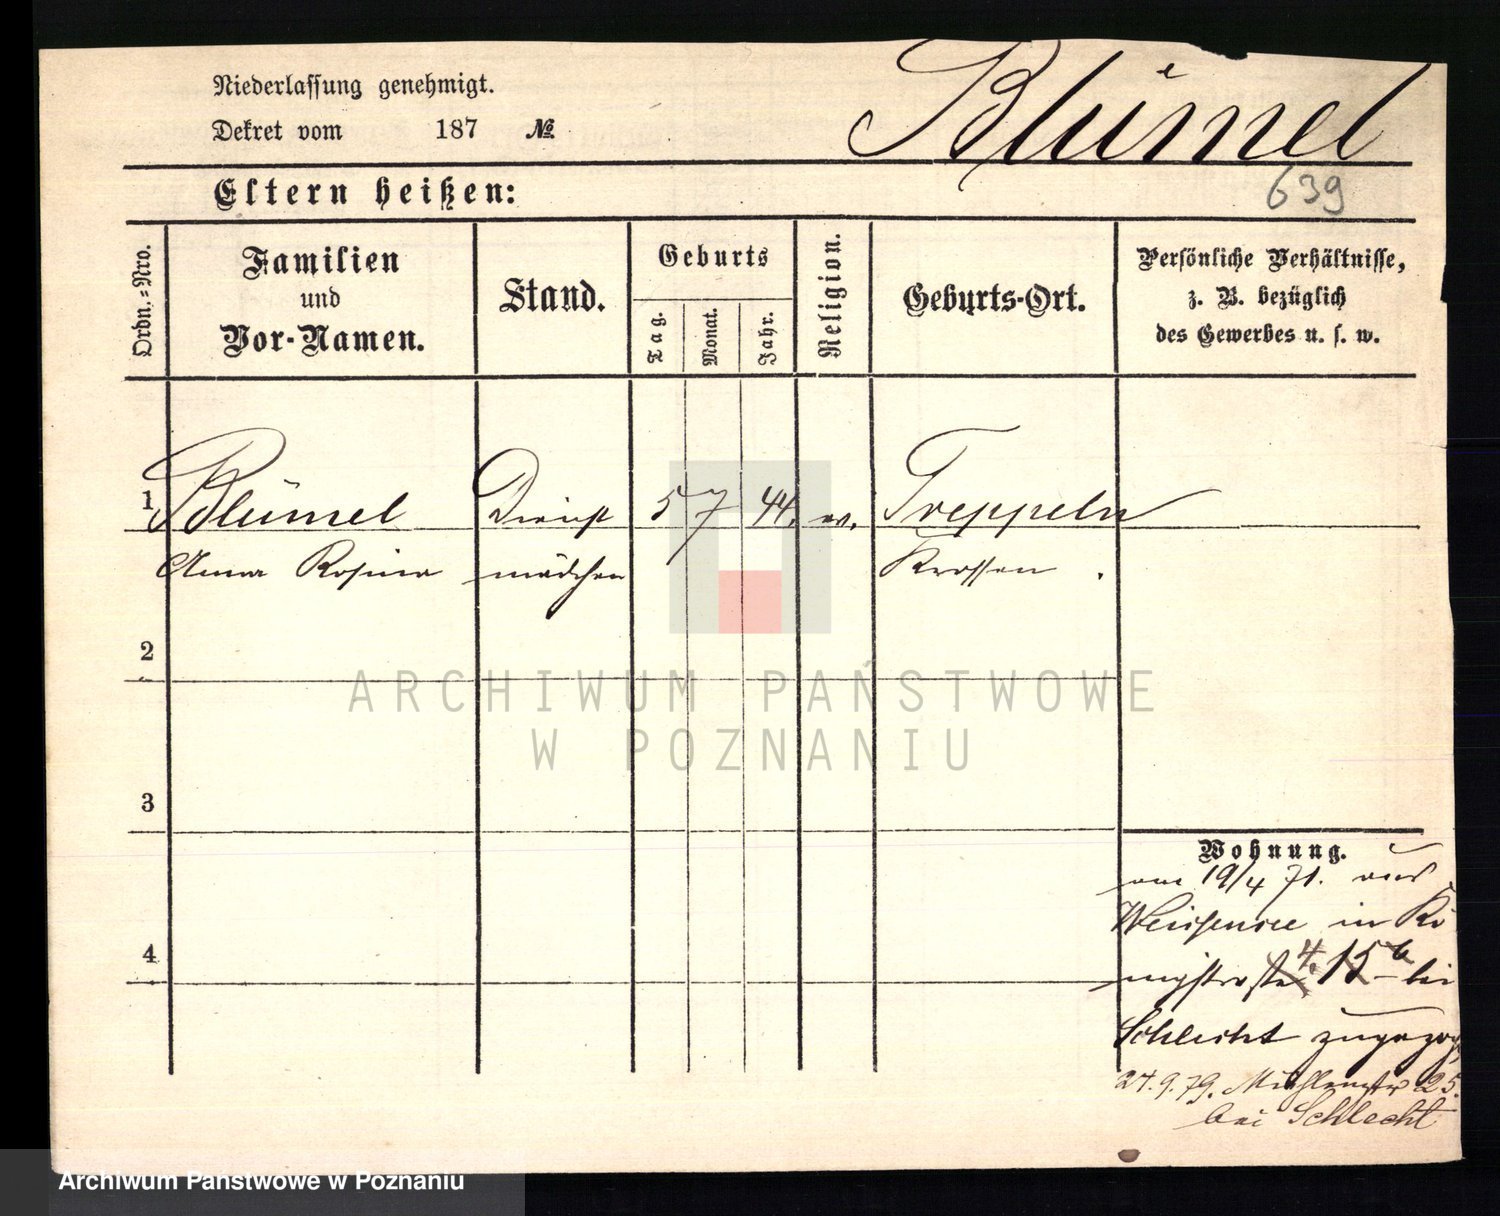 Niederlassung genehmigt.
Blümel
Dekret vom 187 №
Eltern heißen:
639
Ordn.=Nro.
Familien
und
Vor-Namen.
Stand.
Geburts
Tag.
Monat.
Jahr.
Religion.
Geburts-Ort.
Persönliche Verhältnisse,
z. B. bezüglich
des Gewerbes u. s. w.
1 Blümel Dienst 5 7 44. ev. Treppeln
Anna Rosina mädchen Krossen
2
ARCHIWUM PAŃSTWOWE
W POZNANIU
3
4
Wohnung.
am 19/4 71. aus
Weissensee in Kö
nigstrasse 4. 15 bei
Schlecht
24.9.79. Mühlenstr 25.
bei Schlecht
Archiwum Państwowe w Poznaniu